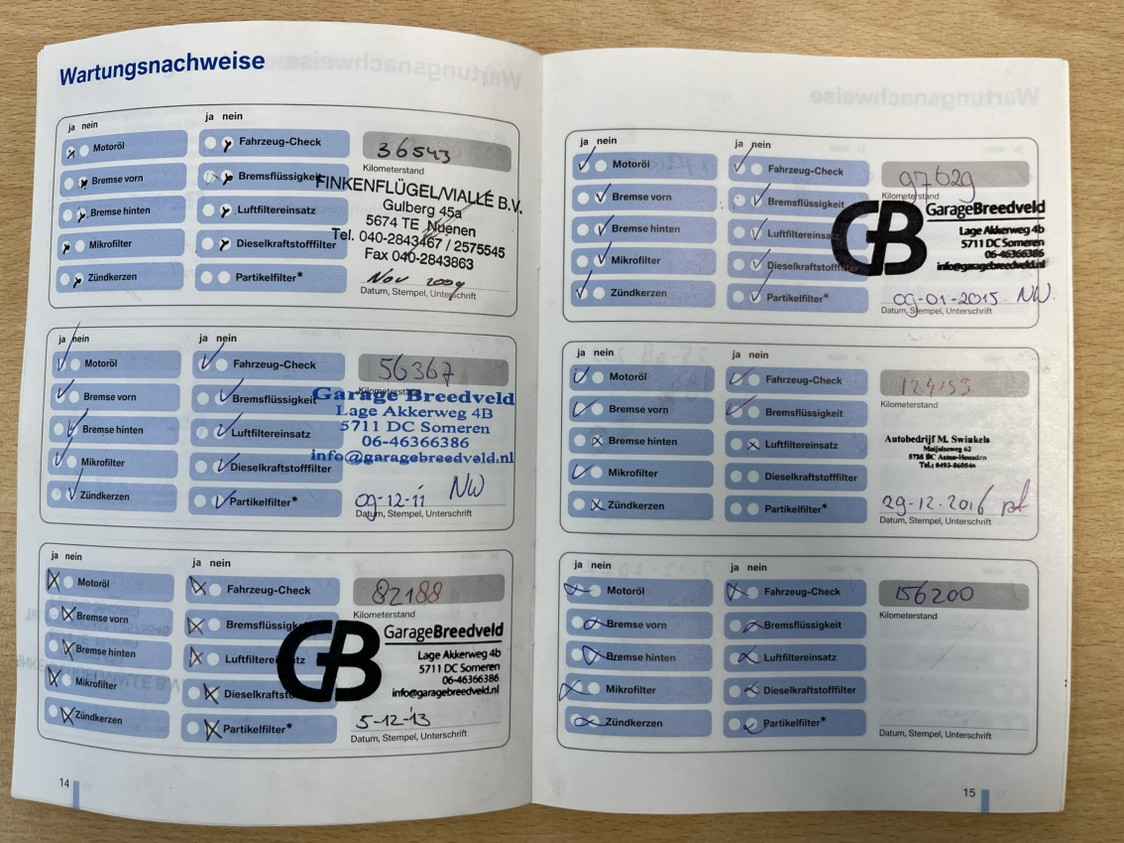 Wartungsnachweise
ja nein
ja nein
Motoröl
Fahrzeug-Check
36543
Kilometerstand
Bremse vorn
Bremsflüssigkeit
FINKENFLÜGEL/VIALLÉ B.V.
Gulberg 45a
Bremse hinten
Luftfiltereinsatz
5674 TE Nuenen
Tel. 040-2843467 / 2575545
Mikrofilter
Dieselkraftstofffilter
Fax 040-2843863
Zündkerzen
Partikelfilter*
Nov 2009
Datum, Stempel, Unterschrift
ja nein
ja nein
Motoröl
Fahrzeug-Check
56367
Kilometerstand
Bremse vorn
Bremsflüssigkeit
Garage Breedveld
Lage Akkerweg 4B
Bremse hinten
Luftfiltereinsatz
5711 DC Someren
06-46366386
Mikrofilter
Dieselkraftstofffilter
info@garagebreedveld.nl
Zündkerzen
Partikelfilter*
09-12-11 NW
Datum, Stempel, Unterschrift
ja nein
ja nein
Motoröl
Fahrzeug-Check
82188
Kilometerstand
Bremse vorn
Bremsflüssigkeit
GB GarageBreedveld
Bremse hinten
Luftfiltereinsatz
Lage Akkerweg 4b
5711 DC Someren
06-46366386
Mikrofilter
info@garagebreedveld.nl
Zündkerzen
Partikelfilter*
5-12-'13
Datum, Stempel, Unterschrift
14
ja nein
ja nein
Motoröl
Fahrzeug-Check
97629
Kilometerstand
Bremse vorn
Bremsflüssigkeit
GB GarageBreedveld
Bremse hinten
Lage Akkerweg 4b
5711 DC Someren
06-46366386
Mikrofilter
info@garagebreedveld.nl
Zündkerzen
Partikelfilter*
09-01-2015 NW.
Datum, Stempel, Unterschrift
ja nein
ja nein
Motoröl
Fahrzeug-Check
Kilometerstand
Bremse vorn
Bremsflüssigkeit
Bremse hinten
Luftfiltereinsatz
Autobedrijf M. Swinkels
Mikrofilter
Dieselkraftstofffilter
Zündkerzen
Partikelfilter*
29-12-2016
Datum, Stempel, Unterschrift
ja nein
ja nein
Motoröl
Fahrzeug-Check
156200
Kilometerstand
Bremse vorn
Bremsflüssigkeit
Bremse hinten
Luftfiltereinsatz
Mikrofilter
Dieselkraftstofffilter
Zündkerzen
Partikelfilter*
Datum, Stempel, Unterschrift
15